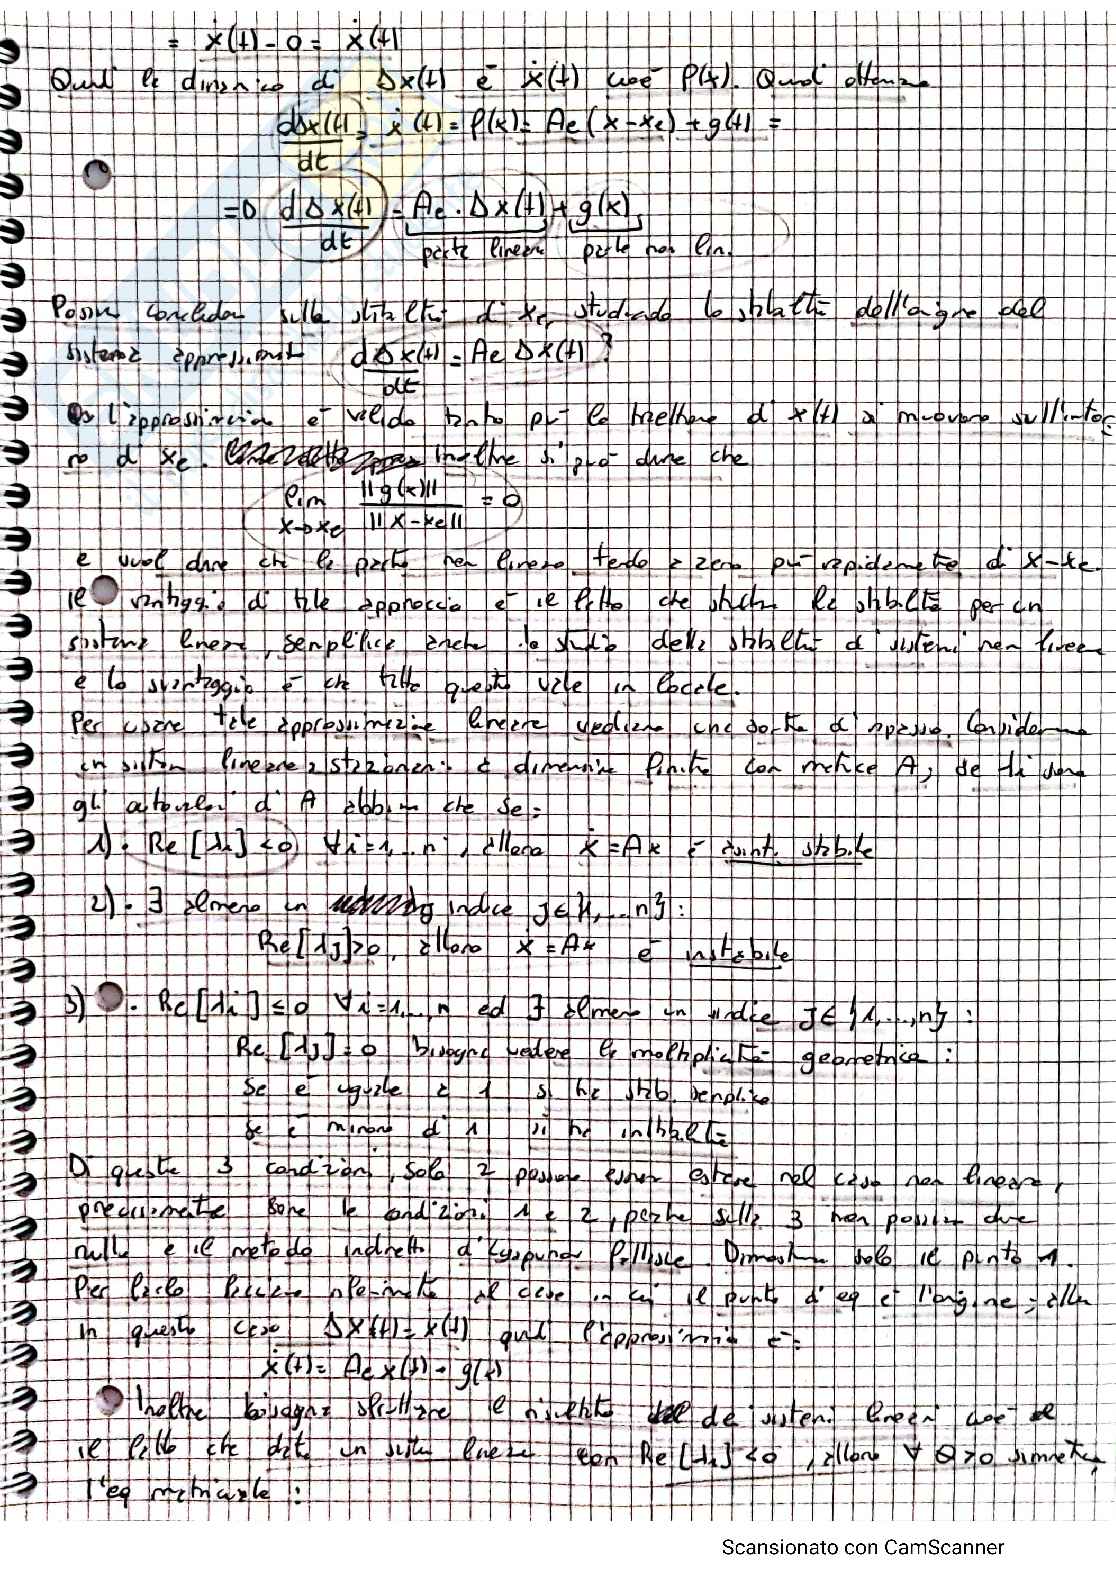 = ẋ(t) - 0 = ẋ(t)
Quindi la dinamica di Δx(t) è ẋ(t) cioè f(x). Quindi otteniamo
dΔx(t)/dt = ẋ(t) = f(x) = Ae(x-xe) + g(t) =
=D dΔx(t)/dt = Ae · Δx(t) + g(x)
parte lineare parte non lin.
Possiamo concludere sulla stabilità di xe studiando la stabilità dell'origine del
sistema approssimato dΔx(t)/dt = Ae Δx(t) ?
l'approssimazione è valida tanto più le traiettorie di x(t) si muovono sull'intor-
no di xe. Inoltre si può dire che
lim x→xe ||g(x)|| / ||x-xe|| = 0
e vuol dire che la parte non lineare tende a zero più rapidamente di x-xe.
Il vantaggio di tale approccio è il fatto che studiare la stabilità per un
sistema lineare, semplifica anche lo studio della stabilità di sistemi non lineari
e lo svantaggio è che tutto questo vale in locale.
Per usare tale approssimazione lineare vediamo una sorta di ripasso. Consideriamo
un sistema lineare stazionario a dimensione finita con matrice A; se λi sono
gli autovalori di A abbiamo che se:
1) · Re[λi] < 0 ∀i=1,...n, allora ẋ=Ax è asint. stabile
2) · ∃ almeno un indice j∈{1,...n}:
Re[λj]>0, allora ẋ=Ax è instabile
3) · Re[λi] ≤ 0 ∀i=1,...,n ed ∃ almeno un indice j∈{1,...,n}:
Re[λj]=0 bisogna vedere la molteplicità geometrica:
Se è uguale a 1 si ha stab. semplice
se è minore di 1 si ha instabilità
Di queste 3 condizioni, solo 2 possono essere estese nel caso non lineare,
precisamente sono le condizioni 1 e 2, perché sulla 3 non possiamo dire
nulla e il metodo indiretto di Lyapunov fallisce. Dimostriamo solo il punto 1.
Per farlo facciamo riferimento al caso in cui il punto d'eq è l'origine; allora
in questo caso Δx(t) = x(t) quindi l'approssimazione è:
ẋ(t) = Ae x(t) + g(x)
Inoltre bisogna sfruttare il risultato dei sistemi lineari cioè
il fatto che dato un sistema lineare con Re[λi] < 0, allora ∀ Q>0 simmetrica,
l'eq matriciale:
Scansionato con CamScanner